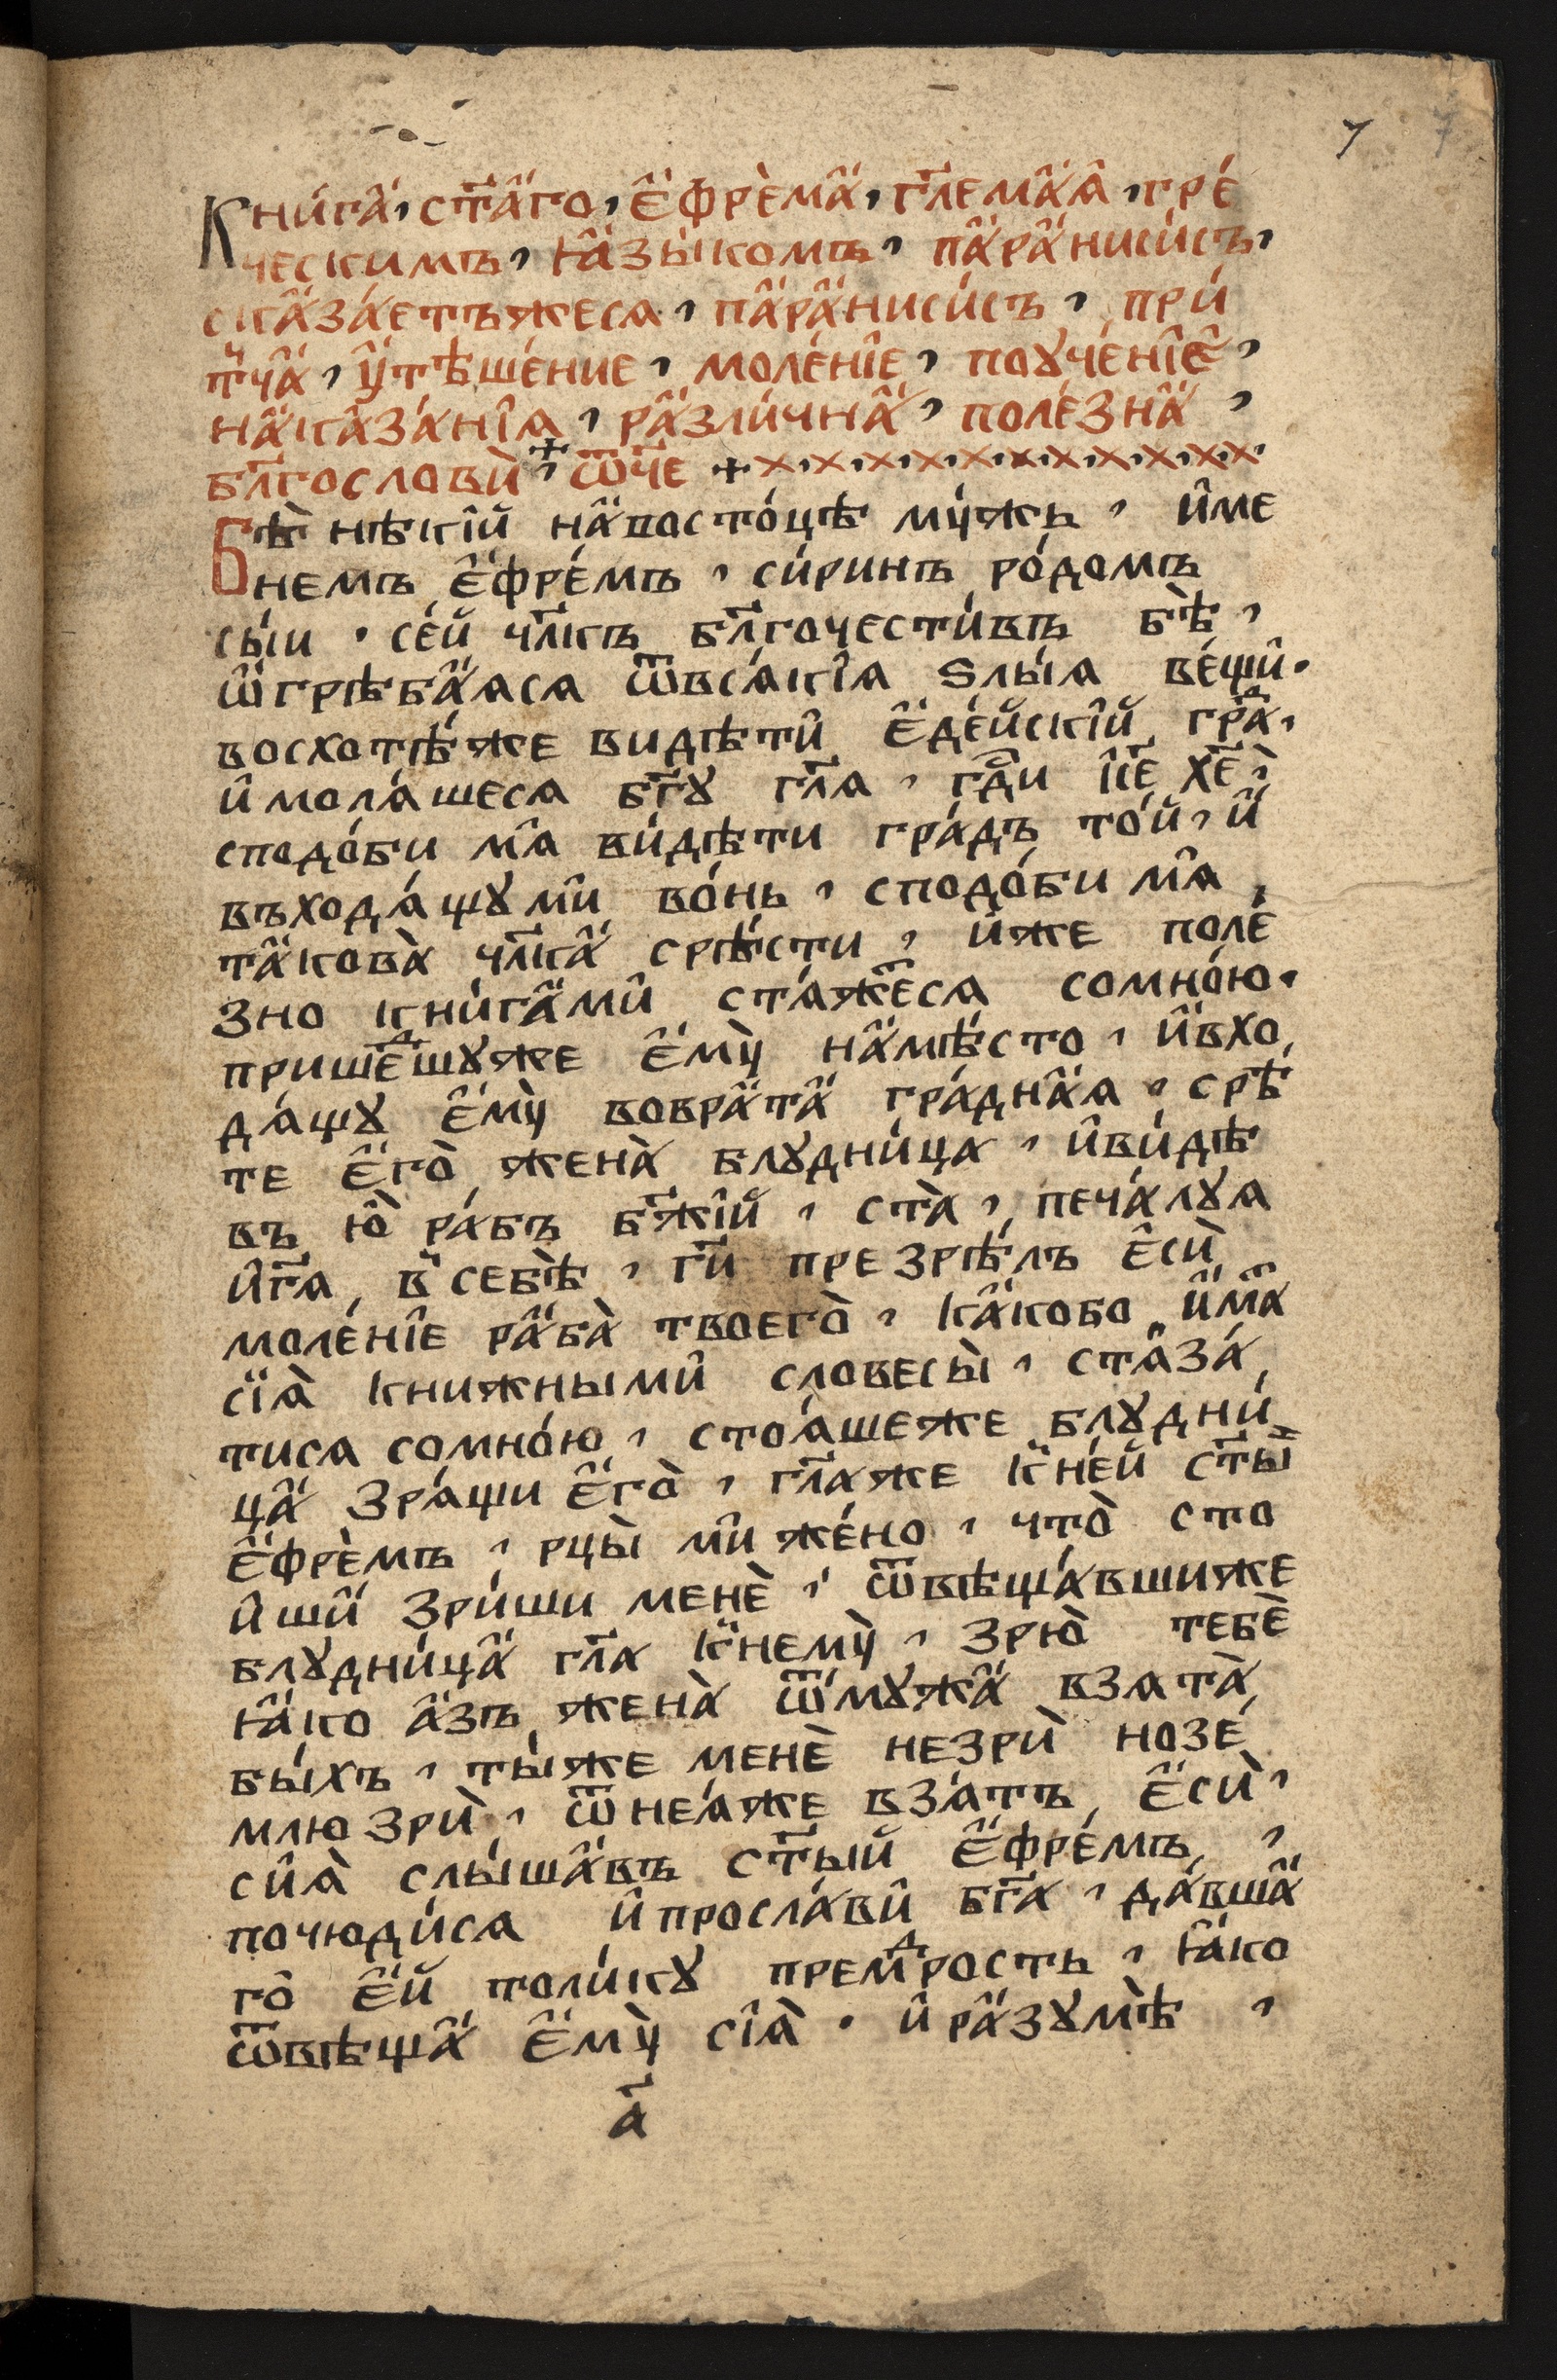 7 7
Кни́га҆̀, ст҃а҆̀го, Е҆̀фрѐма҆̀, гл҃ема҆̀ѧ҆, гре́
ческимъ, ꙗ҆̀зы́комъ, па҆̀ра҆̀ниси́съ,
ска҆̀за́етъжесѧ, па҆̀ра҆̀ниси́съ, при́
тч҃а҆̀, ᲂу҆̀тѣше́ние, моле́нїе, поꙋче́нїе҆,
на҆̀ка҆̀за́нїѧ, ра҆̀зли́чна҆̀, поле́зна҆̀,
бл҃гослови̇̀, ѿч҃е + × × × × × × × × × × ×
Бѣ̀ нѣ́кїй на҆̀восто́цѣ му́жь, и҆ме
немъ Е҆̀фре́мъ, си́ринъ ро́домъ
сы́и. се́й чл҃къ бл҃гочести́въ бѣ̀,
ѡ҆̀грѣба҆̀ѧсѧ ѿвсѧ́кїѧ ѕлы́ѧ ве́щи҆.
восхотѣ́же видѣти҆ Е҆̀де́йскїй гра҆ⷣ,
и҆молѧ́шесѧ бг҃ꙋ гл҃ѧ, гдⷭ҇и іс҃е хе҃,
сподо́би мѧ҆ ви́дѣти гра́дъ то́й, и҆̀
въходѧ́щꙋми҆ во́нь, сподо́би мѧ҆,
та҆̀кова̀ чл҃ка҆̀ срѣ́сти, и҆́же поле́
зно кни́га҆̀ми҆ стѧ́жетⷭ҇сѧ сомно́ю.
прише́ⷣшꙋже е҆̀му̀ на҆̀мѣ́сто, и҆̀вхо
дѧ́щꙋ е҆̀му̀ вовра҆̀та҆̀ гра́дна҆̀ѧ, срѣ́
те е҆̀го̀ жена̀ блꙋдни́ца, и҆ви́дѣ
въ ю҆̀ ра́бъ бж҃їй, ста̀, печа́лꙋѧ
и҆гл҃ѧ, в себѣ̀, гⷭ҇и презрѣ́лъ е҆̀сѝ
моле́нїе ра҆̀ба̀ твоего̀, ка҆̀кобо и҆̀ма҆ⷮ
сїѧ̀ кни́жными҆ словесы̀, стѧ҆за́
тисѧ сомно́ю, стоѧ́шеже блꙋдни́
ца҆̀ зрѧ́щи е҆̀го̀, гл҃аже к не́й ст҃ы́й
Е҆̀фрѐмъ, рцы̀ ми҆ же́но, что̀ сто
и҆ши҆̀ зри́ши менѐ, ѿвѣща́вшиже
блꙋдни́ца҆̀ гл҃а к нему̀, зрю̀ тебѐ
ꙗ҆̀ко а҆̀зъ жена̀ ѿмꙋ́жа҆̀ взѧта̀
бы́хъ, ты́же менѐ незрѝ нозе́
млюзрѝ, ѿнеѧ́же взѧ́тъ е҆̀сѝ,
си҆ѧ̀ слы́ша҆̀въ ст҃ы́й Е҆̀фре́мъ,
почюди́сѧ и҆просла́ви҆ бг҃а, да́вша҆̀
го҆ е҆̀й толи́кꙋ премⷣрость, ꙗ҆̀ко
ѿвѣща҆̀ е҆̀му̀ сїѧ̀. и҆ра҆̀зꙋмѣ̀,
а҃